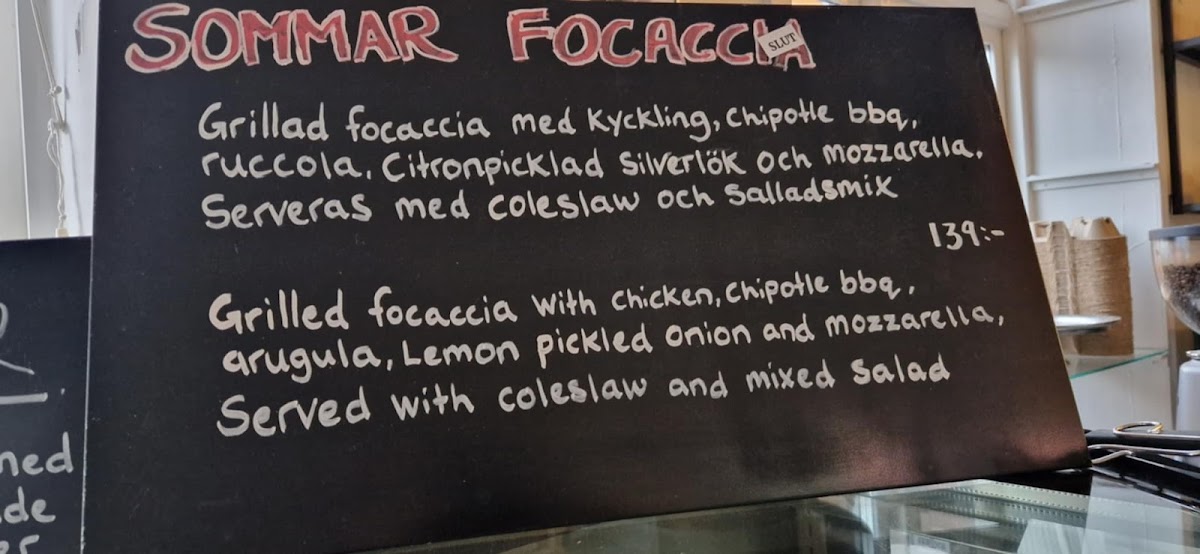 SOMMAR FOCACCIA
SLUT
Grillad focaccia med Kyckling, chipotle bbq,
ruccola, Citronpicklad Silverlök och mozzarella.
Serveras med coleslaw och Salladsmix
139:-
Grilled focaccia with chicken, chipotle bbq,
arugula, Lemon pickled onion and mozzarella,
Served with coleslaw and mixed Salad